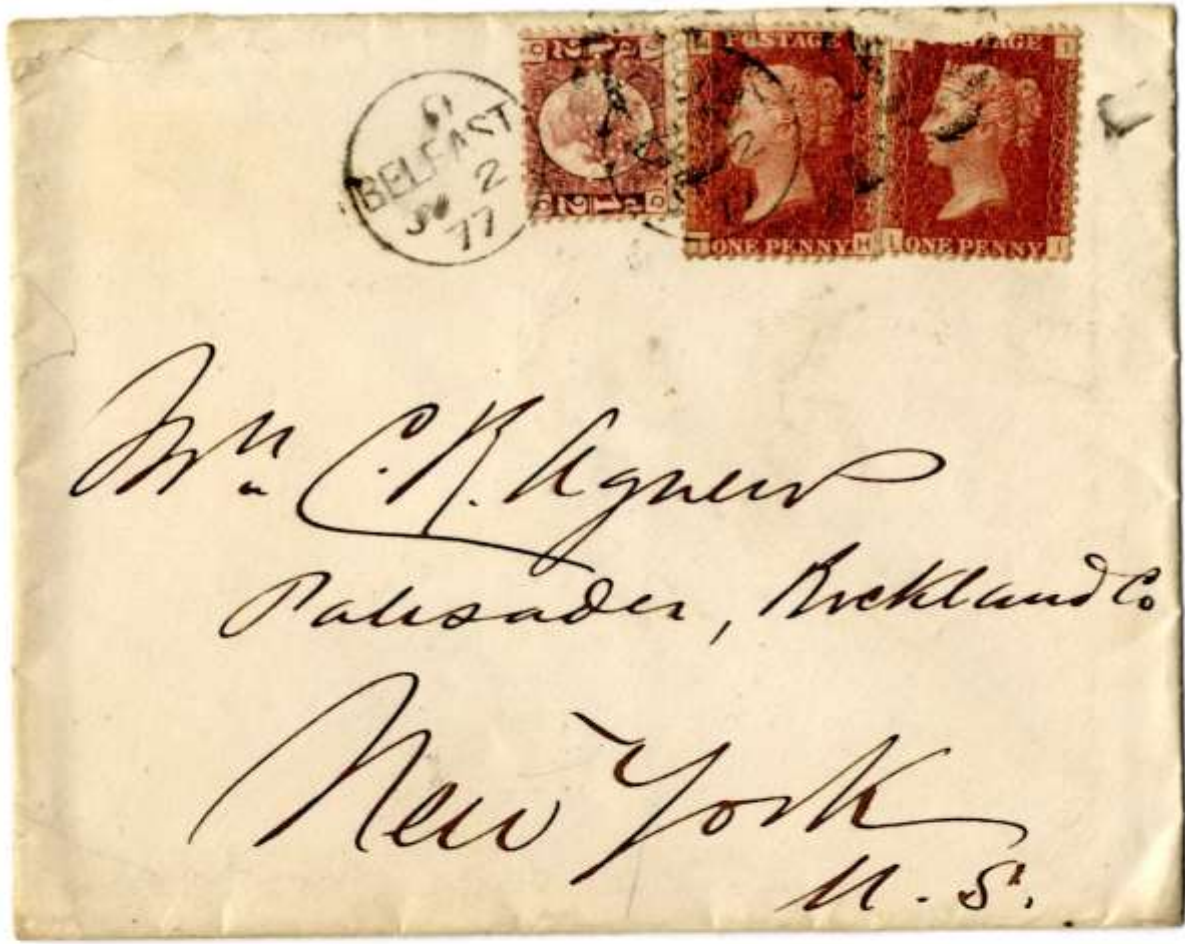 BELFAST
2
77
POSTAGE
ONE PENNY H
POSTAGE I
I ONE PENNY I
Mrs C. R. Agnew
Palisades, Rockland Co
New York
U. S.